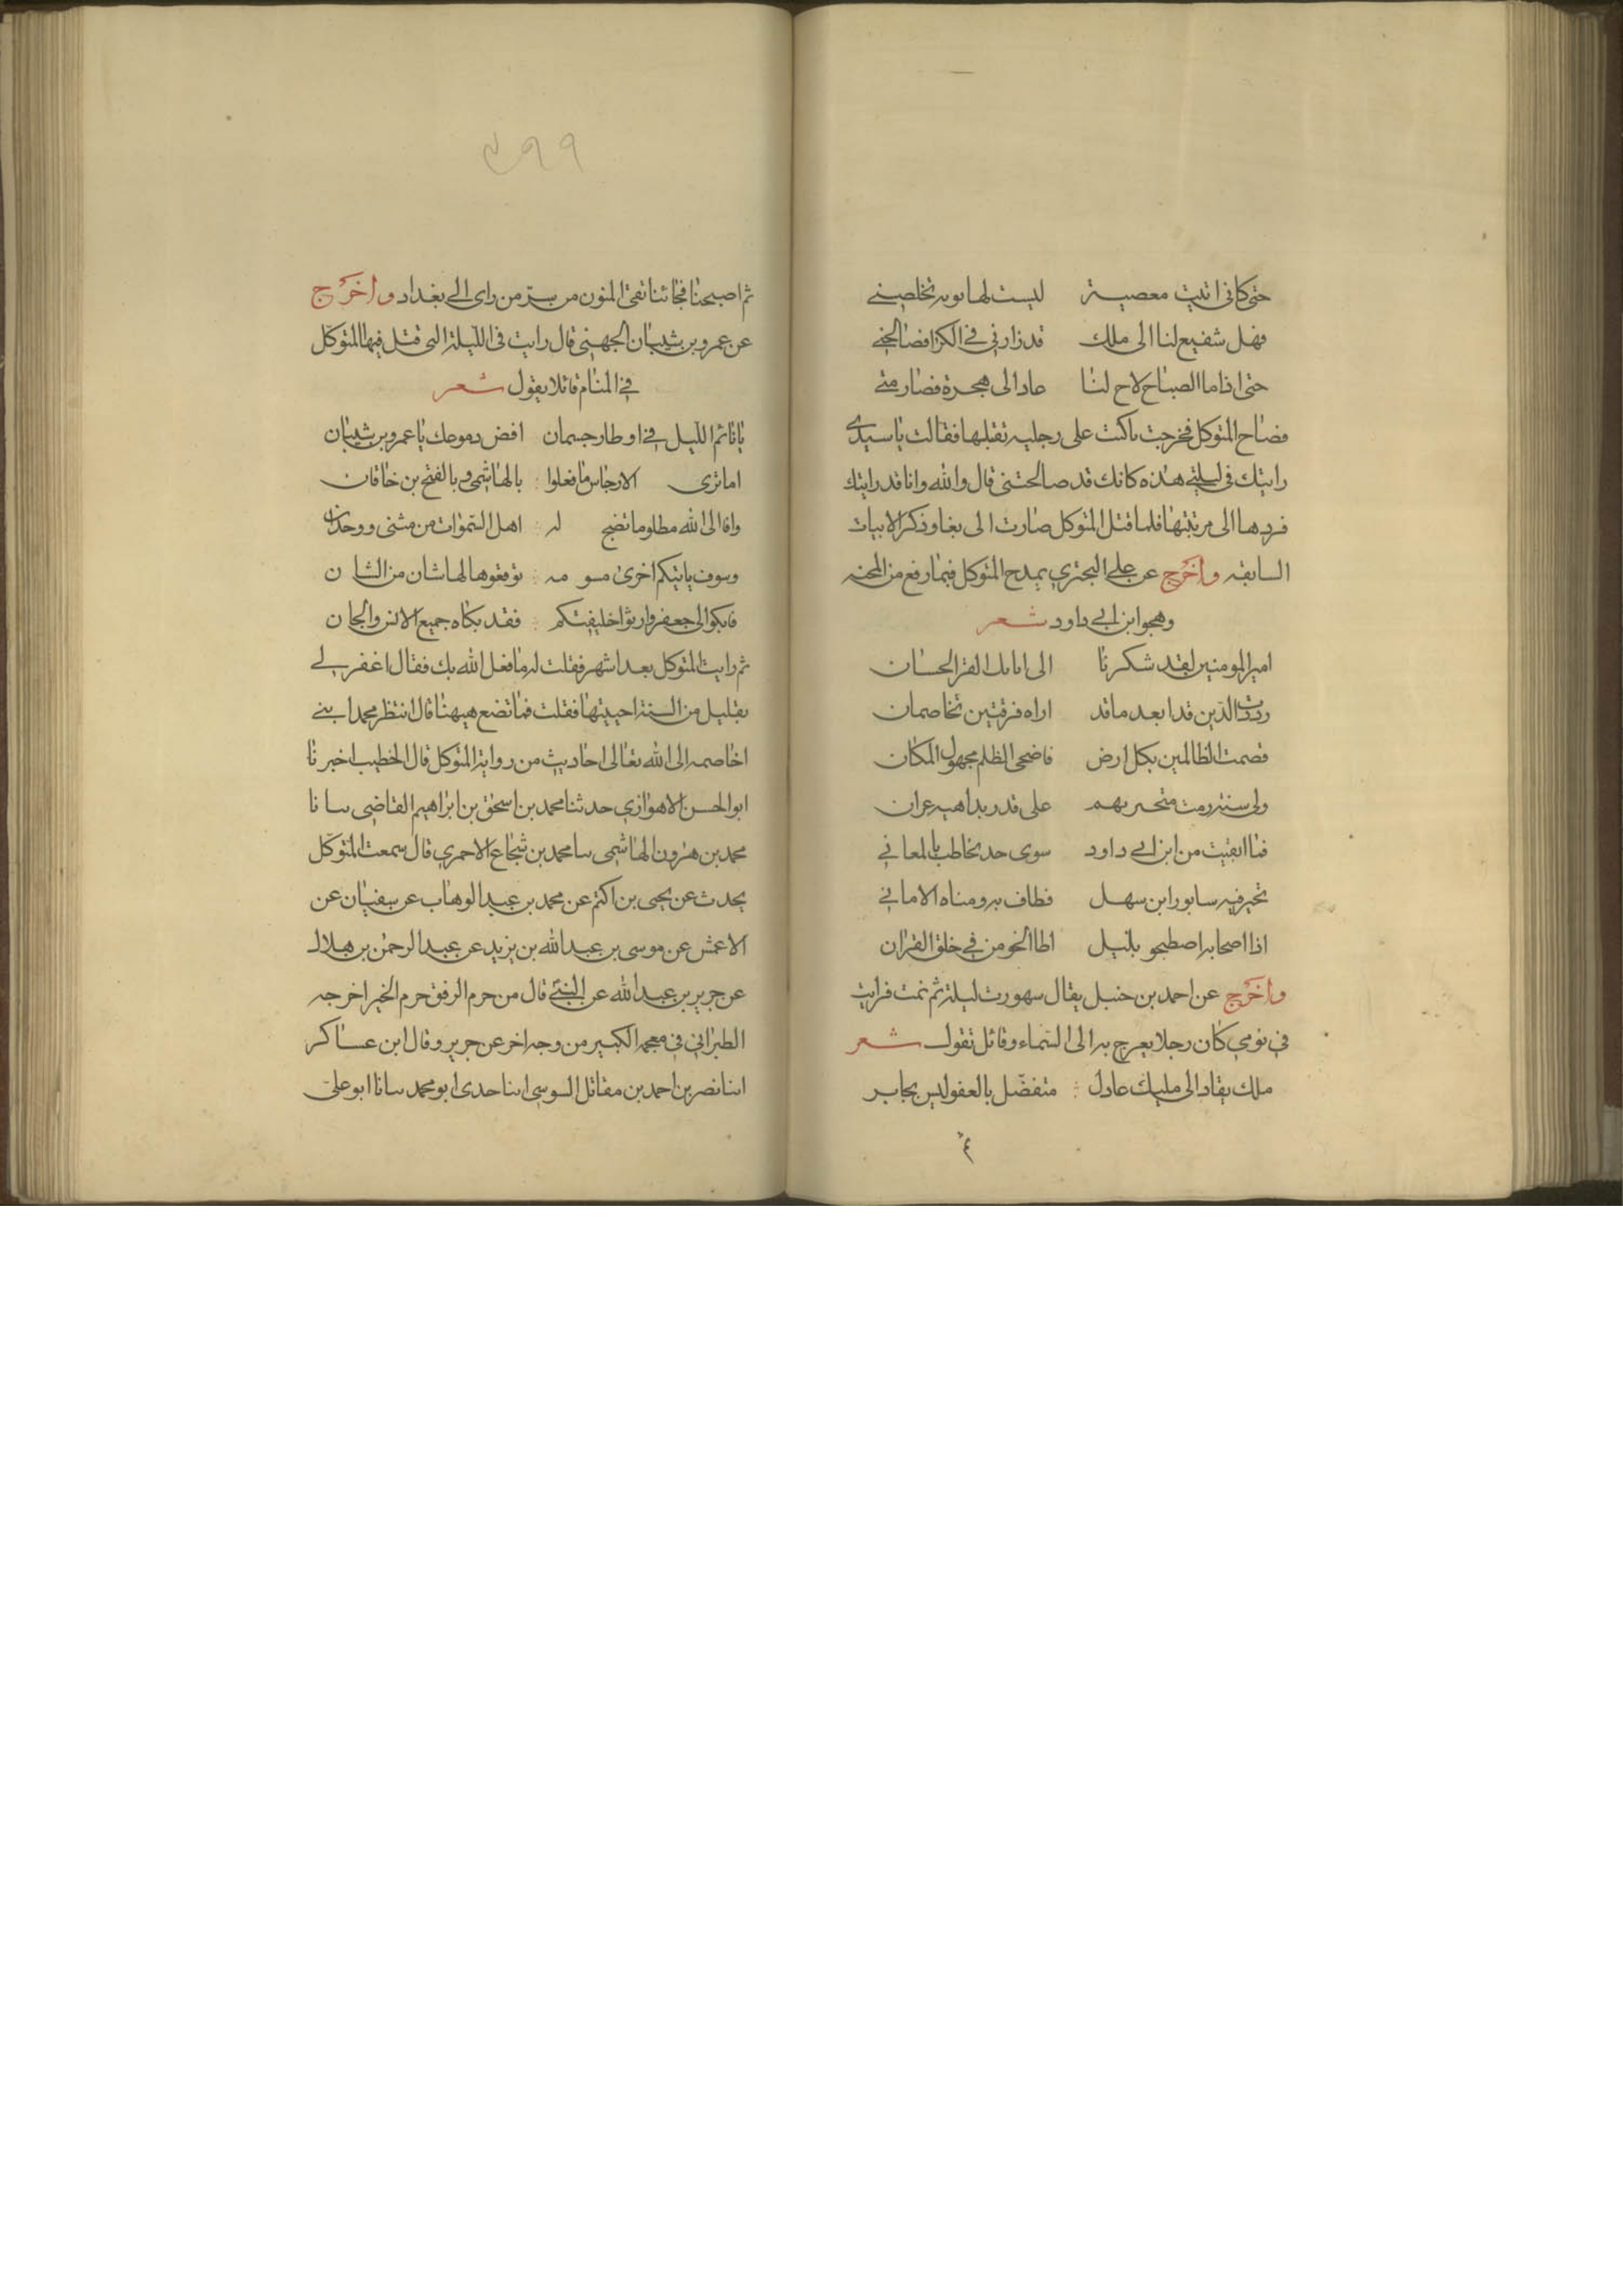 حتى كانى اتيت معصية ليست لها توبه تخلصنے
فهل شفيع لنا الى ملك قد زارنى فے الكرا فصالحنے
حتى اذا ما الصباح لاح لنا عاد الى هجرة فصار منے
فصاح المتوكل فخرجت باكت على رجليه تقبلها فقالت يا سيدى
رايتك فى ليلتے هذه كانك قد صالحتنى قال والله وانا قد رايتك
فردها الى مرتبتها فلما قتل المتوكل صارت الى بغا وذكر الابيات
السابقه واخرج عن على البحترى يمدح المتوكل فيما رفع من المحنه
وهجوا ابن ابى داود شعر
امير المومنين لقد شكرنا الى ابائك الغر الحسان
رددت الدين قدا بعد ما قد اراه فرقتين تخاصمان
قصمت الظالمين بكل ارض فاضحى الظلم مجهول المكان
على قدر بداهيه عران
فما ابقيت من ابن ابى داود سوى حد يخاطب بالمعانى
تحير فيه سابور ابن سهل فطاف به ومناه الامانى
اذا اصحابه اصطبحو بليل اطا الخو من فى خلق القران
واخرج عن احمد بن حنبل يقال سهورت ليلة ثم نمت فرايت
فى نومى كان رجلا يعرج به الى السماء وقائل تقول شعر
ملك يقاد الى مليك عادل متفضل بالعفو ليس بجابر
ثم
٤٩٩
ثم اصبحنا فجائنا نفى المنون من سر من راى الى بغداد واخرج
عن عمرو بن شيبان الجهنى قال رايت فى الليلة التى قتل فيها المتوكل
فى المنام قائلا يقول شعر
يا نائم الليل فى اوطار جسمان افض دموعك يا عمرو بن شيبان
اما ترى الارجاس ما فعلوا بالهاشمى و بالفتح بن خاقان
وافا الى الله مظلوما تضج له اهل السموات من مثنى ووحدان
وسوف ياتيكم اخرى مسومه توقعوها لها شان من الشان
فابكوا الى جعفر وارثوا خليفتكم فقد بكاه جميع الانس والجان
ثم رايت المتوكل بعد اشهر فقلت له ما فعل الله بك فقال اغفر لے
بقليل من السنة احييتها فقلت فما تضع هيهنا قال انتظر محمد ابنے
اخاصمه الى الله تعالى احاديث من رواية المتوكل قال الخطيب اخبرنا
ابو الحسن الاهوازى حدثنا محمد بن اسحق بن ابراهيم القاضى سا نا
محمد بن هرون الهاشمى سا محمد بن شجاع الاحمرى قال سمعت المتوكل
يحدث عن يحيى بن اكتم عن محمد بن عبد الوهاب عن سفيان عن
الاعمش عن موسى بن عبد الله بن يزيد عن عبد الرحمن بن هلال
عن جرير بن عبد الله عن النبے قال من حرم الرفق حرم الخير اخرجه
الطبرانى فى معجمه الكبير من وجه اخر عن جرير وقال ابن عساكر
انبا نصر بن احمد بن مقاتل السوسى انبا حدى ابو محمد سانا ابو على